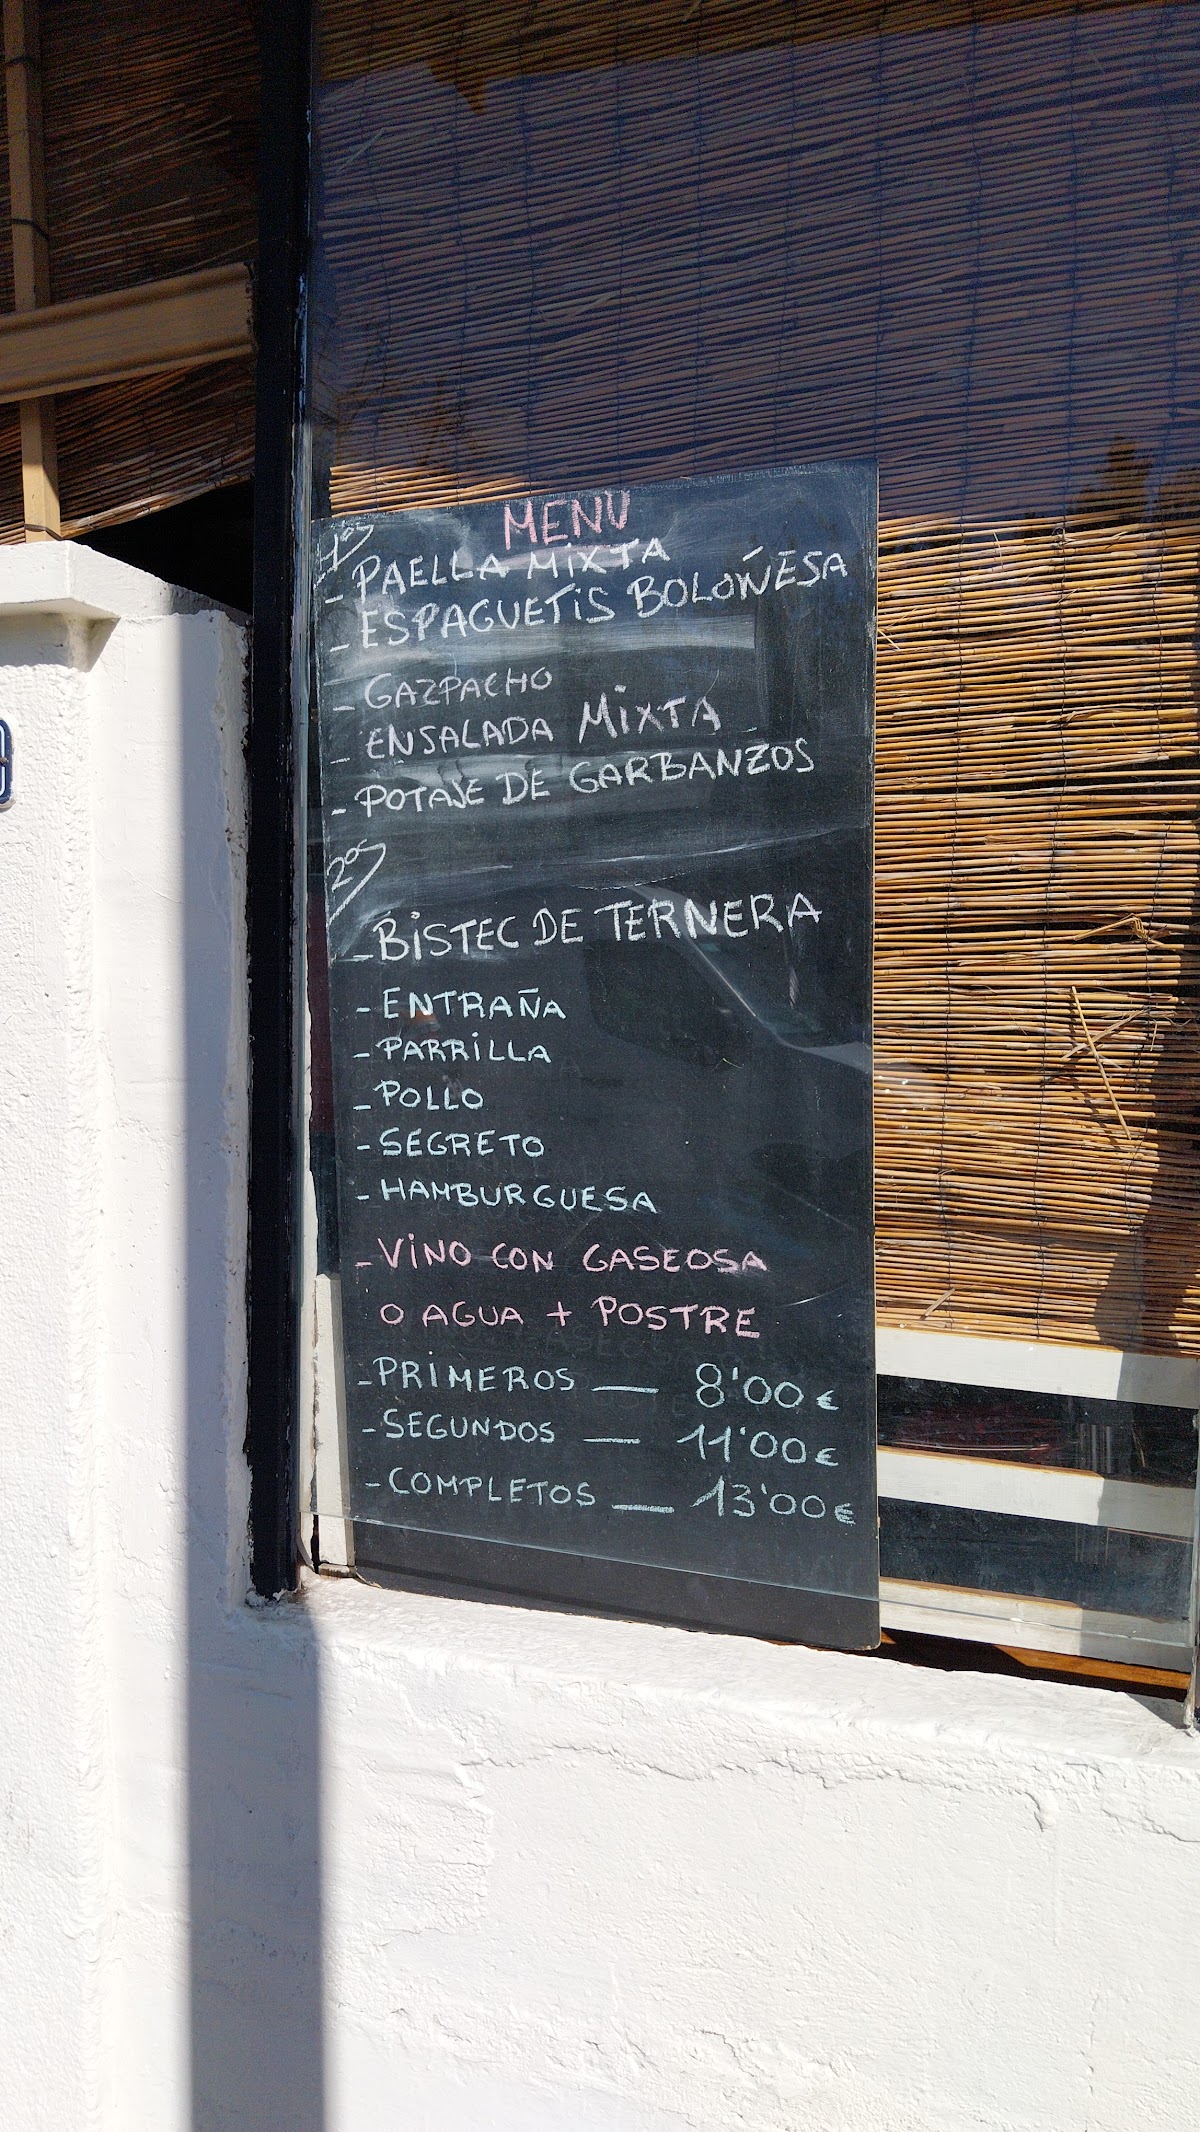 MENU
1os
- PAELLA MIXTA
- ESPAGUETIS BOLOÑESA
- GAZPACHO
- ENSALADA MIXTA
- POTAJE DE GARBANZOS
2os
- BISTEC DE TERNERA
- ENTRAÑA
- PARRILLA
- POLLO
- SEGRETO
- HAMBURGUESA
- VINO CON GASEOSA
O AGUA + POSTRE
- PRIMEROS — 8'00€
- SEGUNDOS — 11'00€
- COMPLETOS — 13'00€